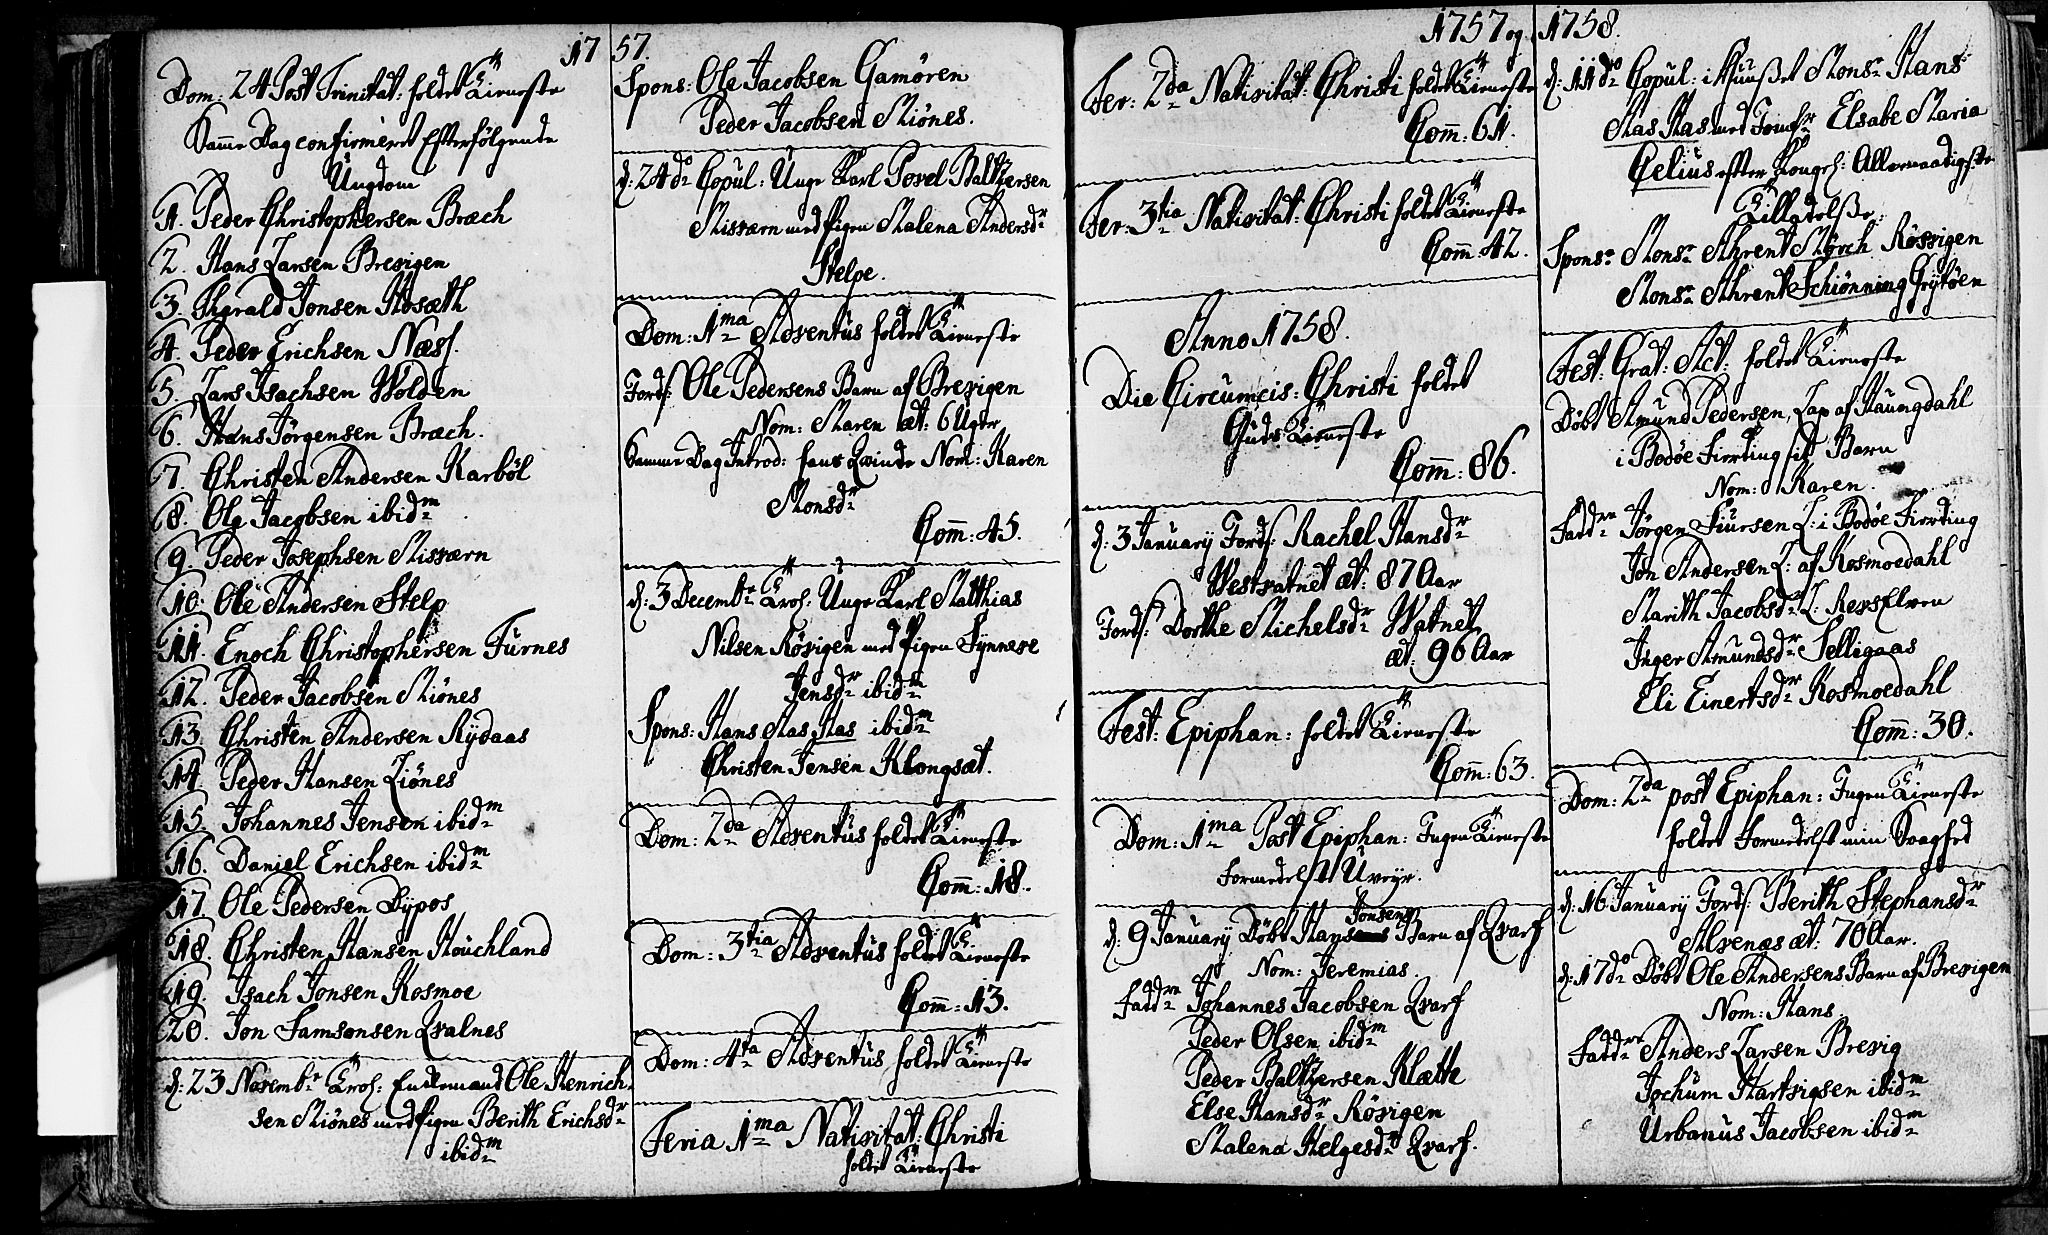 17
Dom: 24 Post Trinitat: holdet Tieneste
Samme Dag confirmeret Efterfölgende
Ungdom
1. Peder Christophersen Bræch
2. Hans Larsen Brevigen
3. Harald Jonsen Aasæth
4. Peder Erichsen Næss.
5. Lars Isachsen Wolden
6. Hans Jörgensen Bræch.
7. Christen Andersen Karböl
8. Ole Jacobsen ibidm
9. Peder Josephsen Misværn
10. Ole Andersen Stelp
11. Enoch Christophersen Furnes
12. Peder Jacobsen Miönes
13. Christen Andersen Rydaas
14. Peder Hansen Liönes
15. Johannes Jensen ibidm
16. Daniel Erichsen ibidm
17. Ole Pedersen Dypos
18. Christen Hansen Houchland
19. Isach Jonsen Kosmoe
20. Jon Samsonsen Qvalnes
d: 23 Novembr Trol: Enkemand Ole Henrich-
sen Miönes med Pigen Berith Erichsdr
ibidm
57.
Spons: Ole Jacobsen Gamören
Peder Jacobsen Miönes.
d: 24 do Copul: Unge Karl Povel Baltzersen
Misværn med Pigen Malena Andersdr
Stelpe.
Dom: 1ma Adventus holdet Tieneste
Jords: Ole Pedersens Barn af Brevigen
Nom: Maren æt: 6 Uger
Samme Dag Introd: hans Qvinde Nom: Karen
Monsdr
Comm: 45.
d: 3 Decembr Trol: Unge Karl Matthias
Nilsen Rösvigen med Pigen Synneve
Jensdr ibidm
Spons: Hans Mas Mas ibidm
Christen Jensen Klongsæt.
Dom: 2da Adventus holdet Tieneste
Comm: 18.
Dom: 3tia Adventus holdet Tieneste
Comm: 13.
Dom: 4ta Adventus holdet Tieneste
Feria 1ma Nativitat: Christi
holdet Tieneste
1757 og
Fer: 2da Nativitat: Christi holdet Tieneste
Comm: 61.
Fer: 3tia Nativitat: Christi holdet Tieneste
Comm: 42.
Anno 1758.
Die Circumcis: Christi holdet
Guds Tieneste
Comm: 86.
d: 3 January Jords: Rachel Hansdr
Westvatnet æt: 87 Aar
Jords: Dorthe Michelsdr Watnet
æt: 96 Aar
Fest: Epiphan: holdet Tieneste
Comm: 63.
Dom: 1ma Post Epiphan: Ingen Tieneste
Formedelst Uveyr.
d: 9 January Döbt Hans Jonsens Barn af Qvarf
Nom: Jeremias.
Faddre Johannes Jacobsen Qvarf
Peder Olsen ibidm
Peder Baltzersen Klætte
Else Hansdr Rösvigen
Malena Helgesdr Qvarf.
1758.
d: 11 do Copul: i Huuset Monsr Hans
Mas Mas med Jomfr Elsabe Maria
Celius efter Kongel: Allernaadigste
Tilladelse.
Sponsr Monsr Ahrent Mörch Rösvigen
Monsr Ahrent Schiönning Grytöen
Fest: Grat: Act: holdet Tieneste
Döbt Amund Pedersen, Lap af Haungdahl
i Bodöe Fierding sit Barn
Nom: Karen.
Faddre Jörgen Siursen L: i Bodöe Fierding
Jon Andersen L: af Kosmoedahl
Marith Jacobsdr L: RevsElven
Inger Amundsdr Selligaas
Eli Einertsdr Kosmoedahl
Comm: 30.
Dom: 2da post Epiphan: Ingen Tieneste
holdet Formedelst min Svaghed
d: 16 January Jords: Berith Stephansdr
Alvenæs æt: 70 Aar.
d: 17 do Döbt Ole Andersens Barn af Brevigen
Nom: Hans.
Faddre Anders Larsen Brevig
Jochum Hartvigsen ibidm
Urbanus Jacobsen ibidm